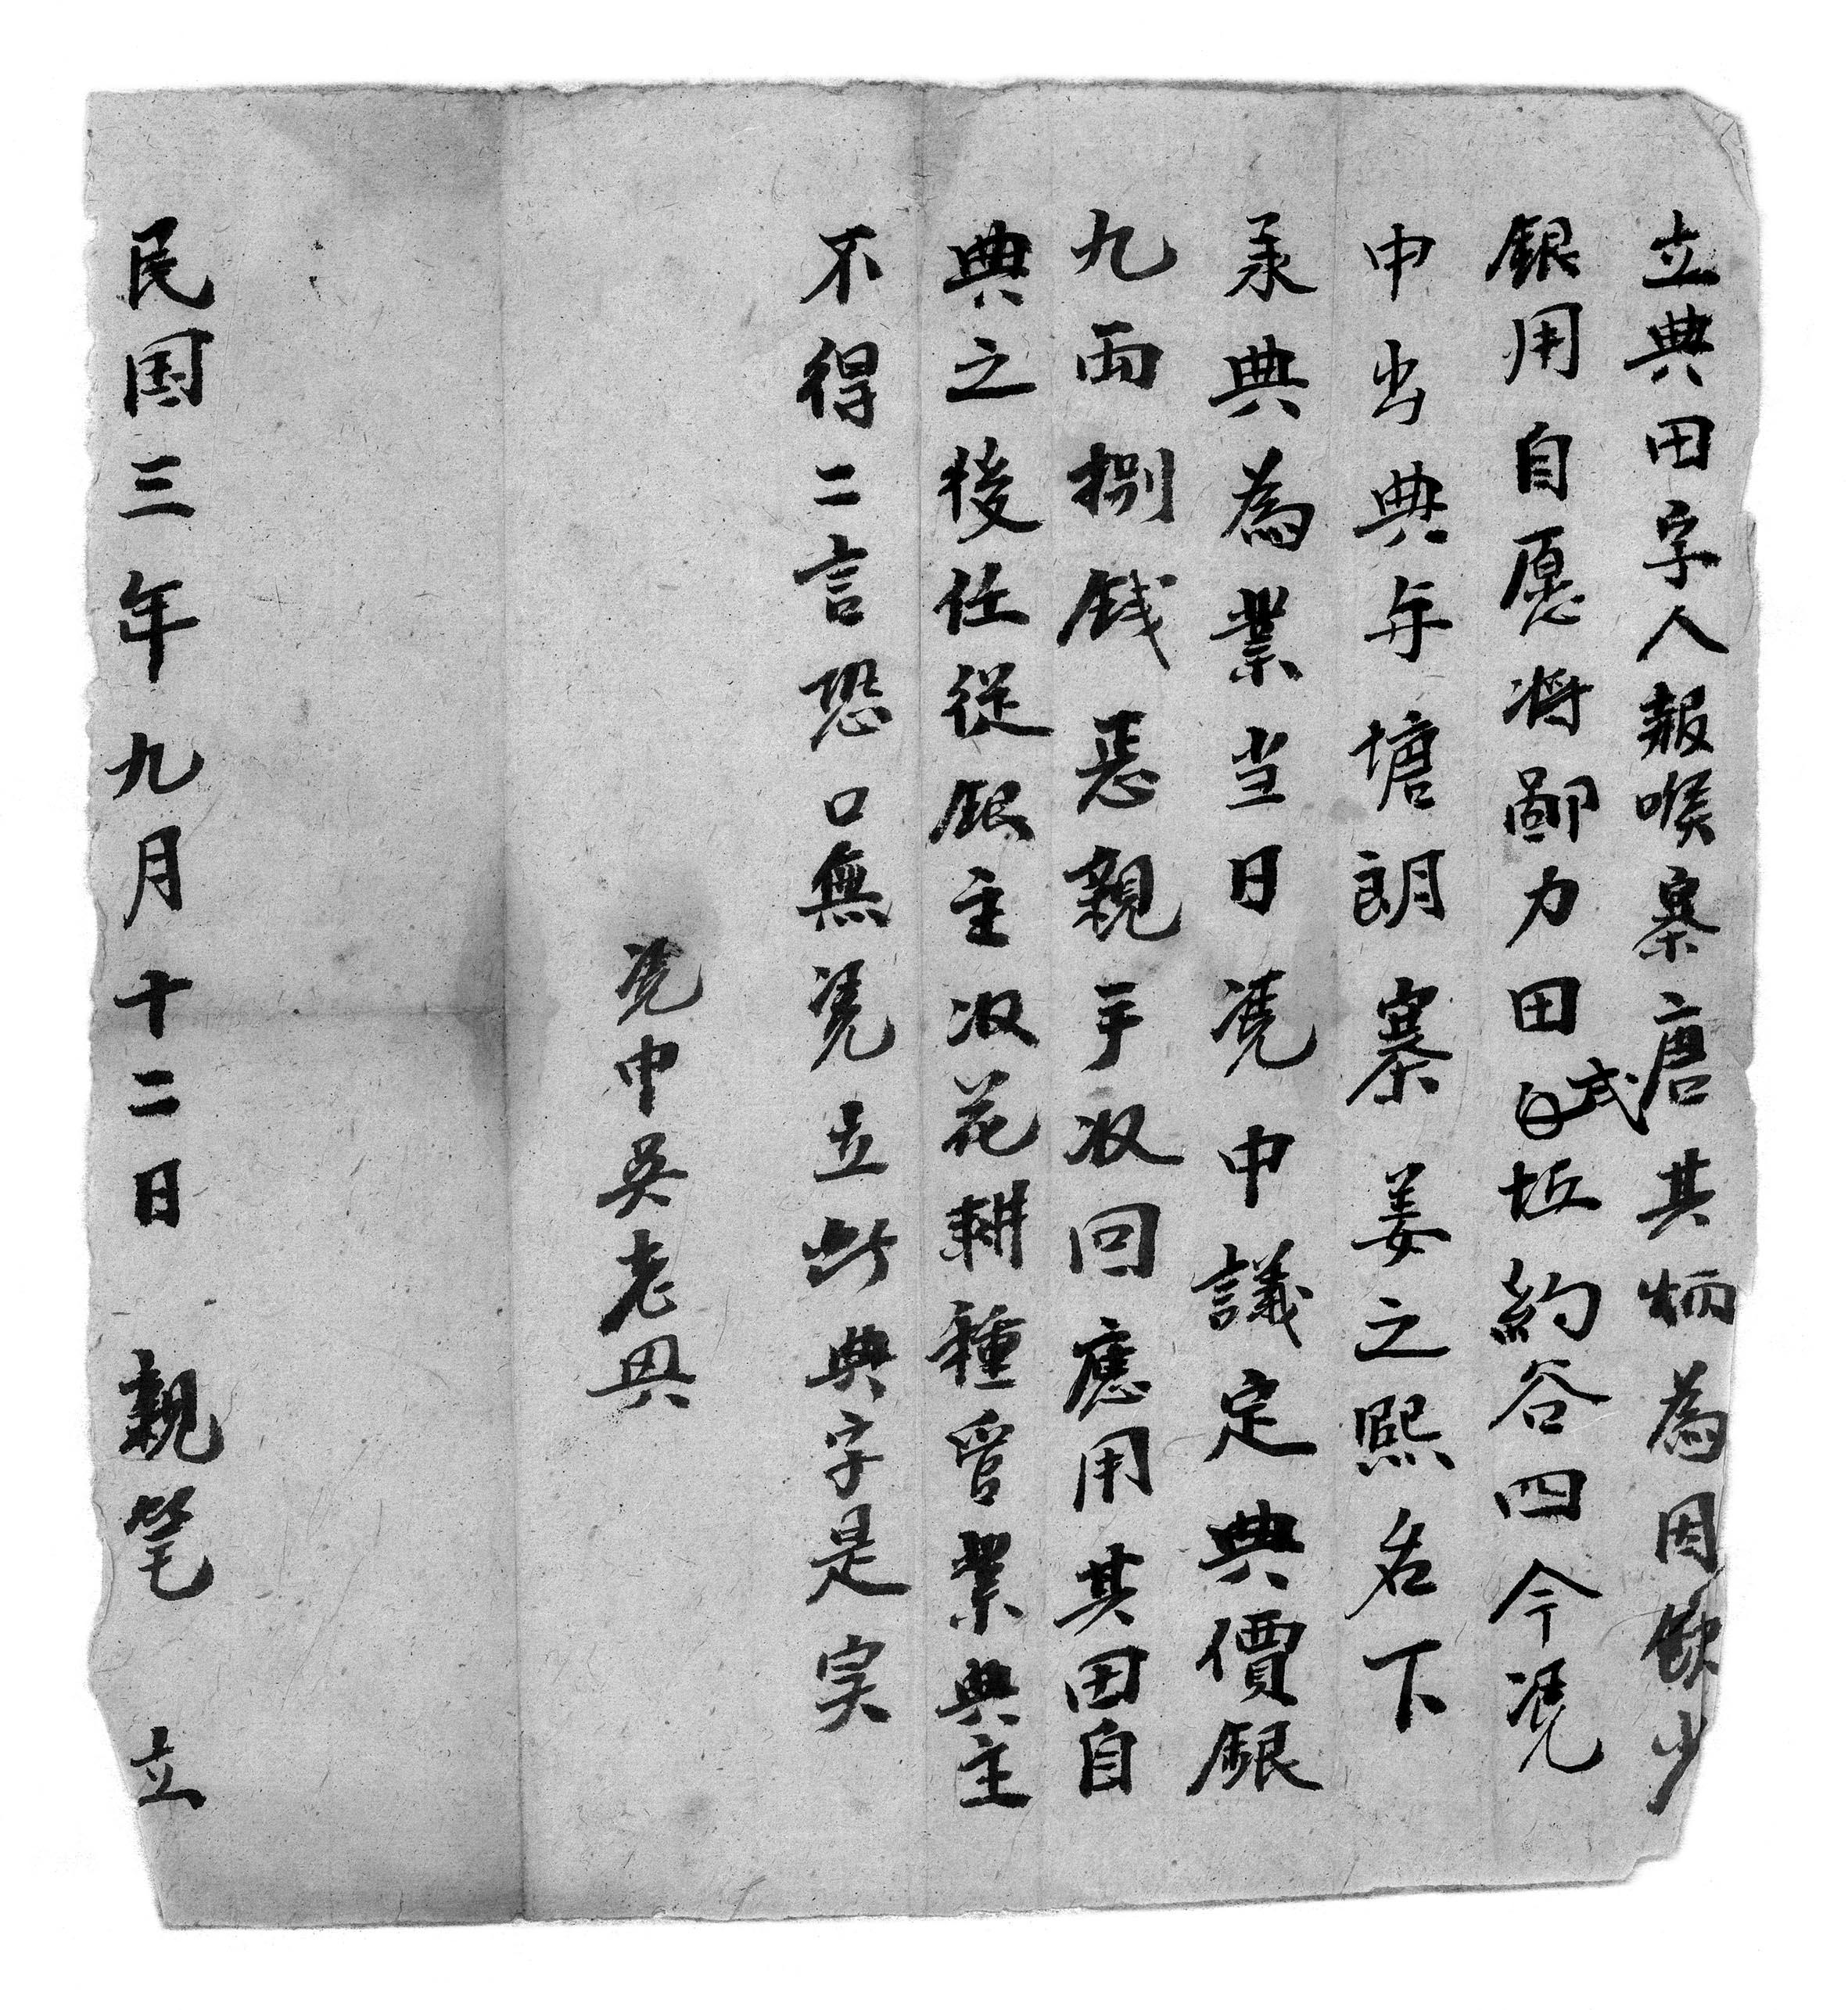 立典田字人報喉寨唐其炳為因缺少
銀用自愿将鄙力田弍坵約谷四今凴
中出典与塘朗寨姜之熙名下
承典為業当日凴中議定典價銀
九両捌錢恶親手收回應用其田自
典之後任從銀主收花耕種管業典主
不得二言恐口無凴立此典字是实
凴中吳老
民国三年九月十二日 親笔 立